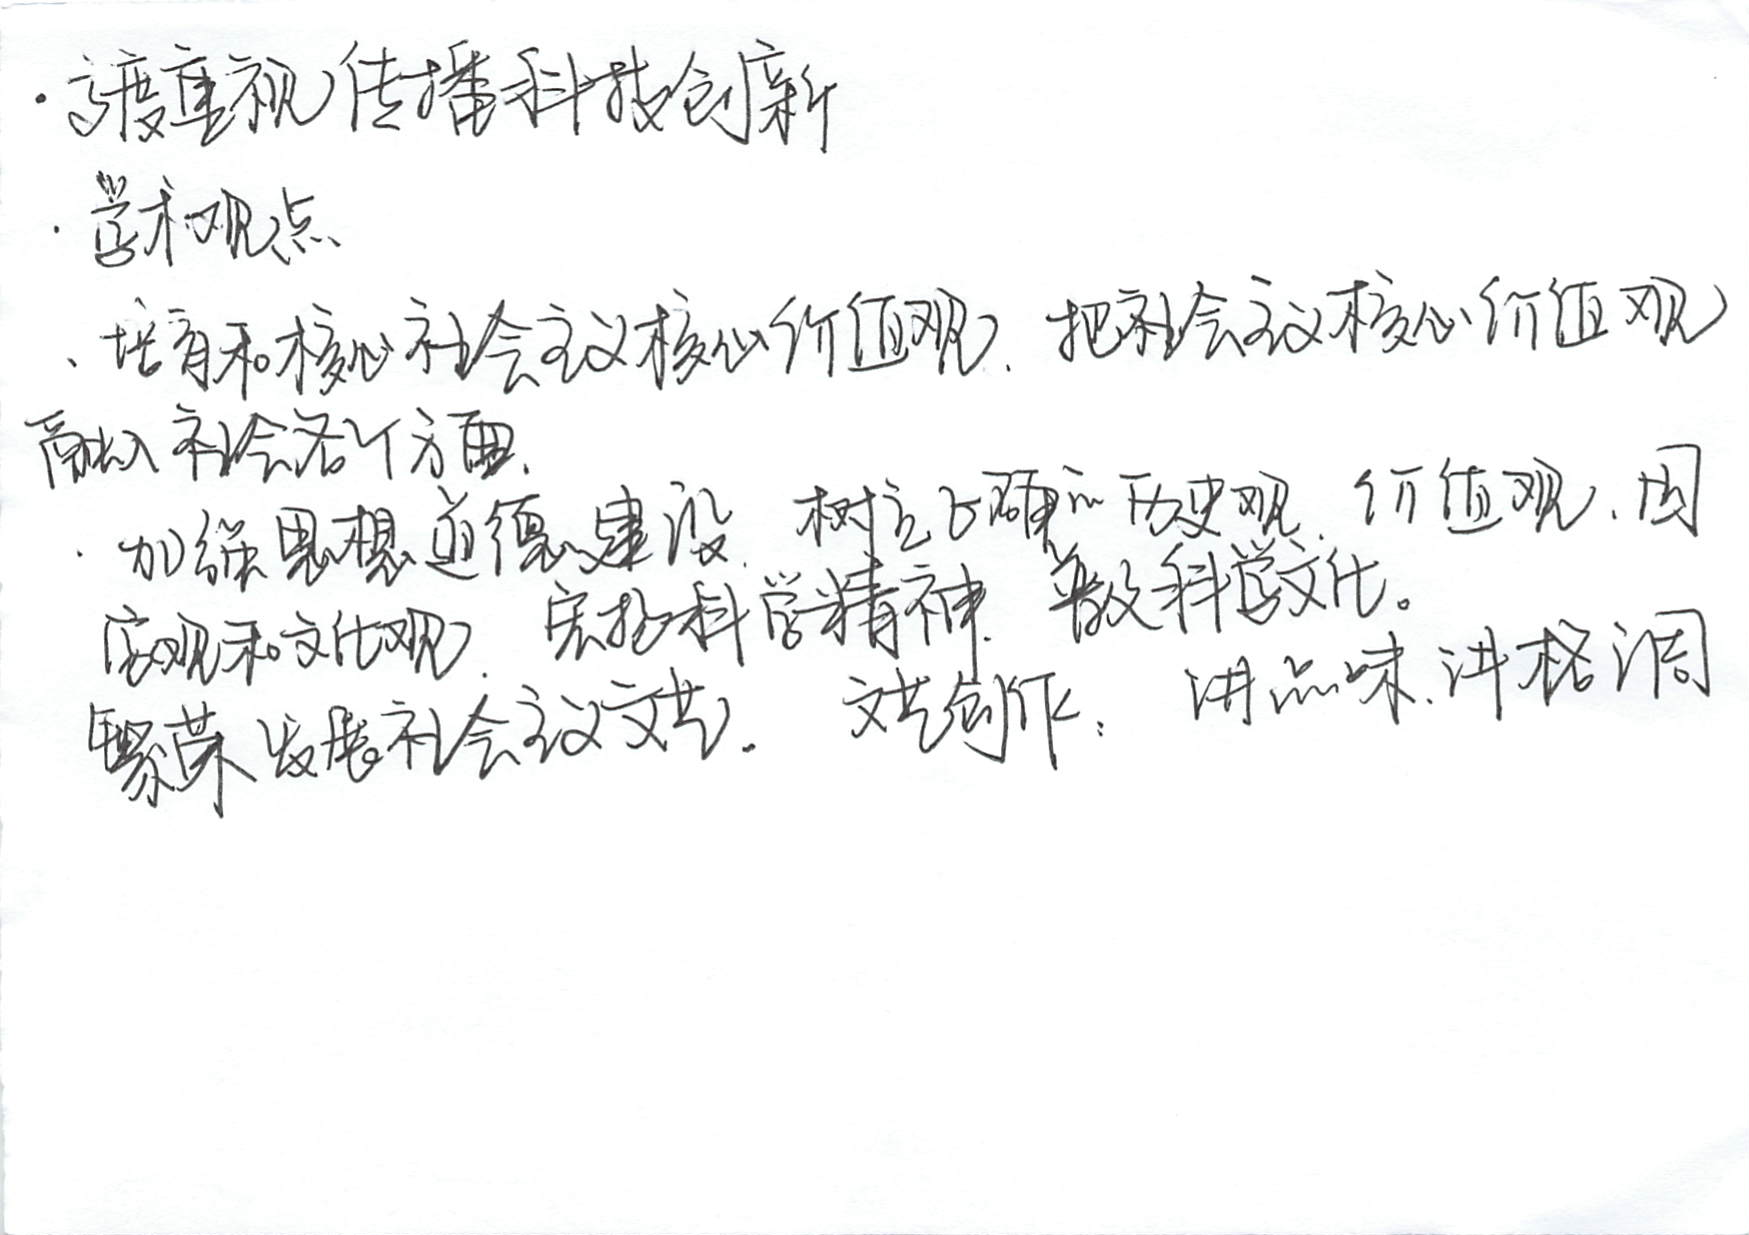 ·高度重视传播科技创新
·学术观点
、培育和核心社会主义核心价值观、把社会主义核心价值观
融入社会各个方面、
·加强思想道德建设、树立正确的历史观、价值观、国
家观和文化观、宏扬科学精神、普及科学文化。
繁荣发展社会主义文艺. 文艺创作：讲品味、讲格调